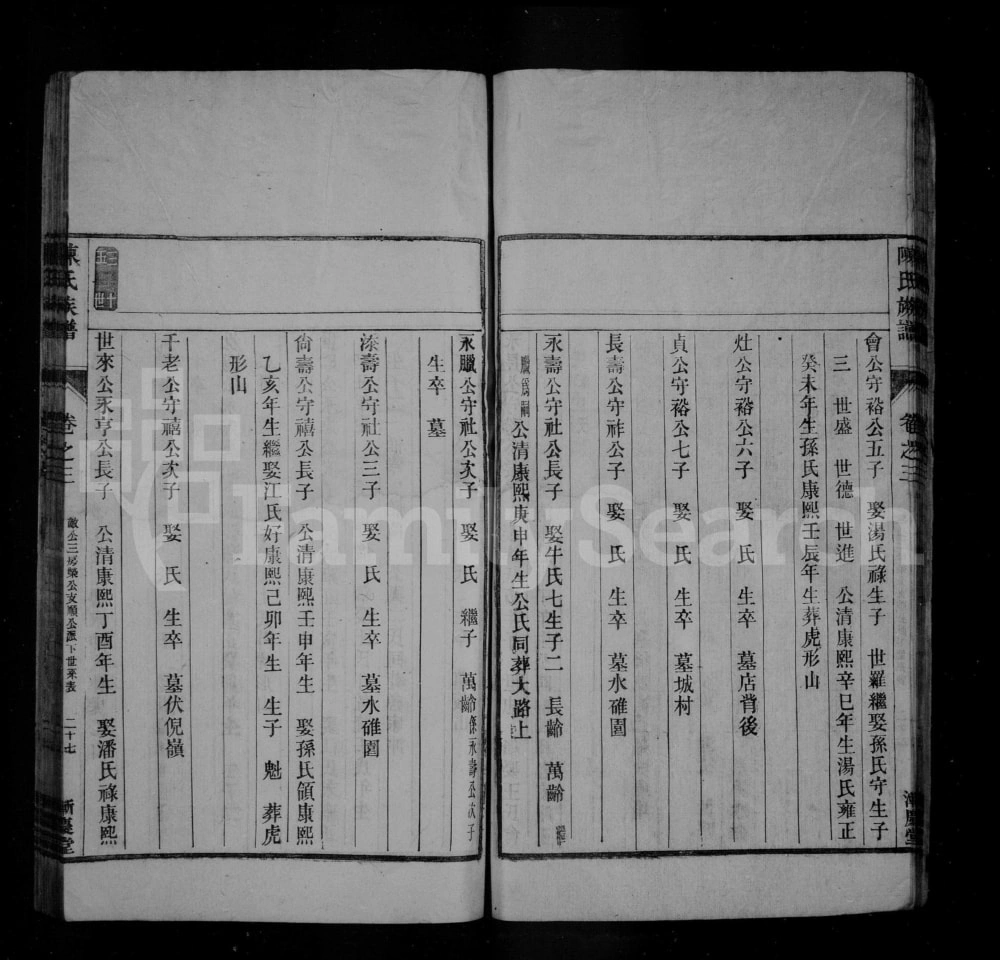 陳氏族譜
卷之三
會公守裕公五子 娶湯氏祿生子 世羅繼娶孫氏守生子
三 世盛 世德 世進 公清康熙辛巳年生湯氏雍正
癸未年生孫氏康熙壬辰年生葬虎形山
灶公守裕公六子 娶 氏 生卒 墓店背後
貞公守裕公七子 娶 氏 生卒 墓城村
長壽公守祚公子 娶 氏 生卒 墓水碓園
永壽公守社公長子 娶牛氏七生子二 長齡 萬齡 繼
臘爲嗣 公清康熙庚申年生公氏同葬大路上
永臘公守社公次子 娶 氏 繼子 萬齡係永壽公次子
生卒 墓
添壽公守社公三子 娶 氏 生卒 墓水碓園
尙壽公守禧公長子 公清康熙壬申年生 娶孫氏領康熙
乙亥年生繼娶江氏好康熙己卯年生 生子 魁 葬虎
形山
千老公守禧公次子 娶 氏 生卒 墓伏倪嶺
三十五世
世來公永亨公長子 公清康熙丁酉年生 娶潘氏祿康熙
陳氏族譜
卷之三
敵公三房榮公支順公派下世來表
二十七
慶堂
FamilySearch